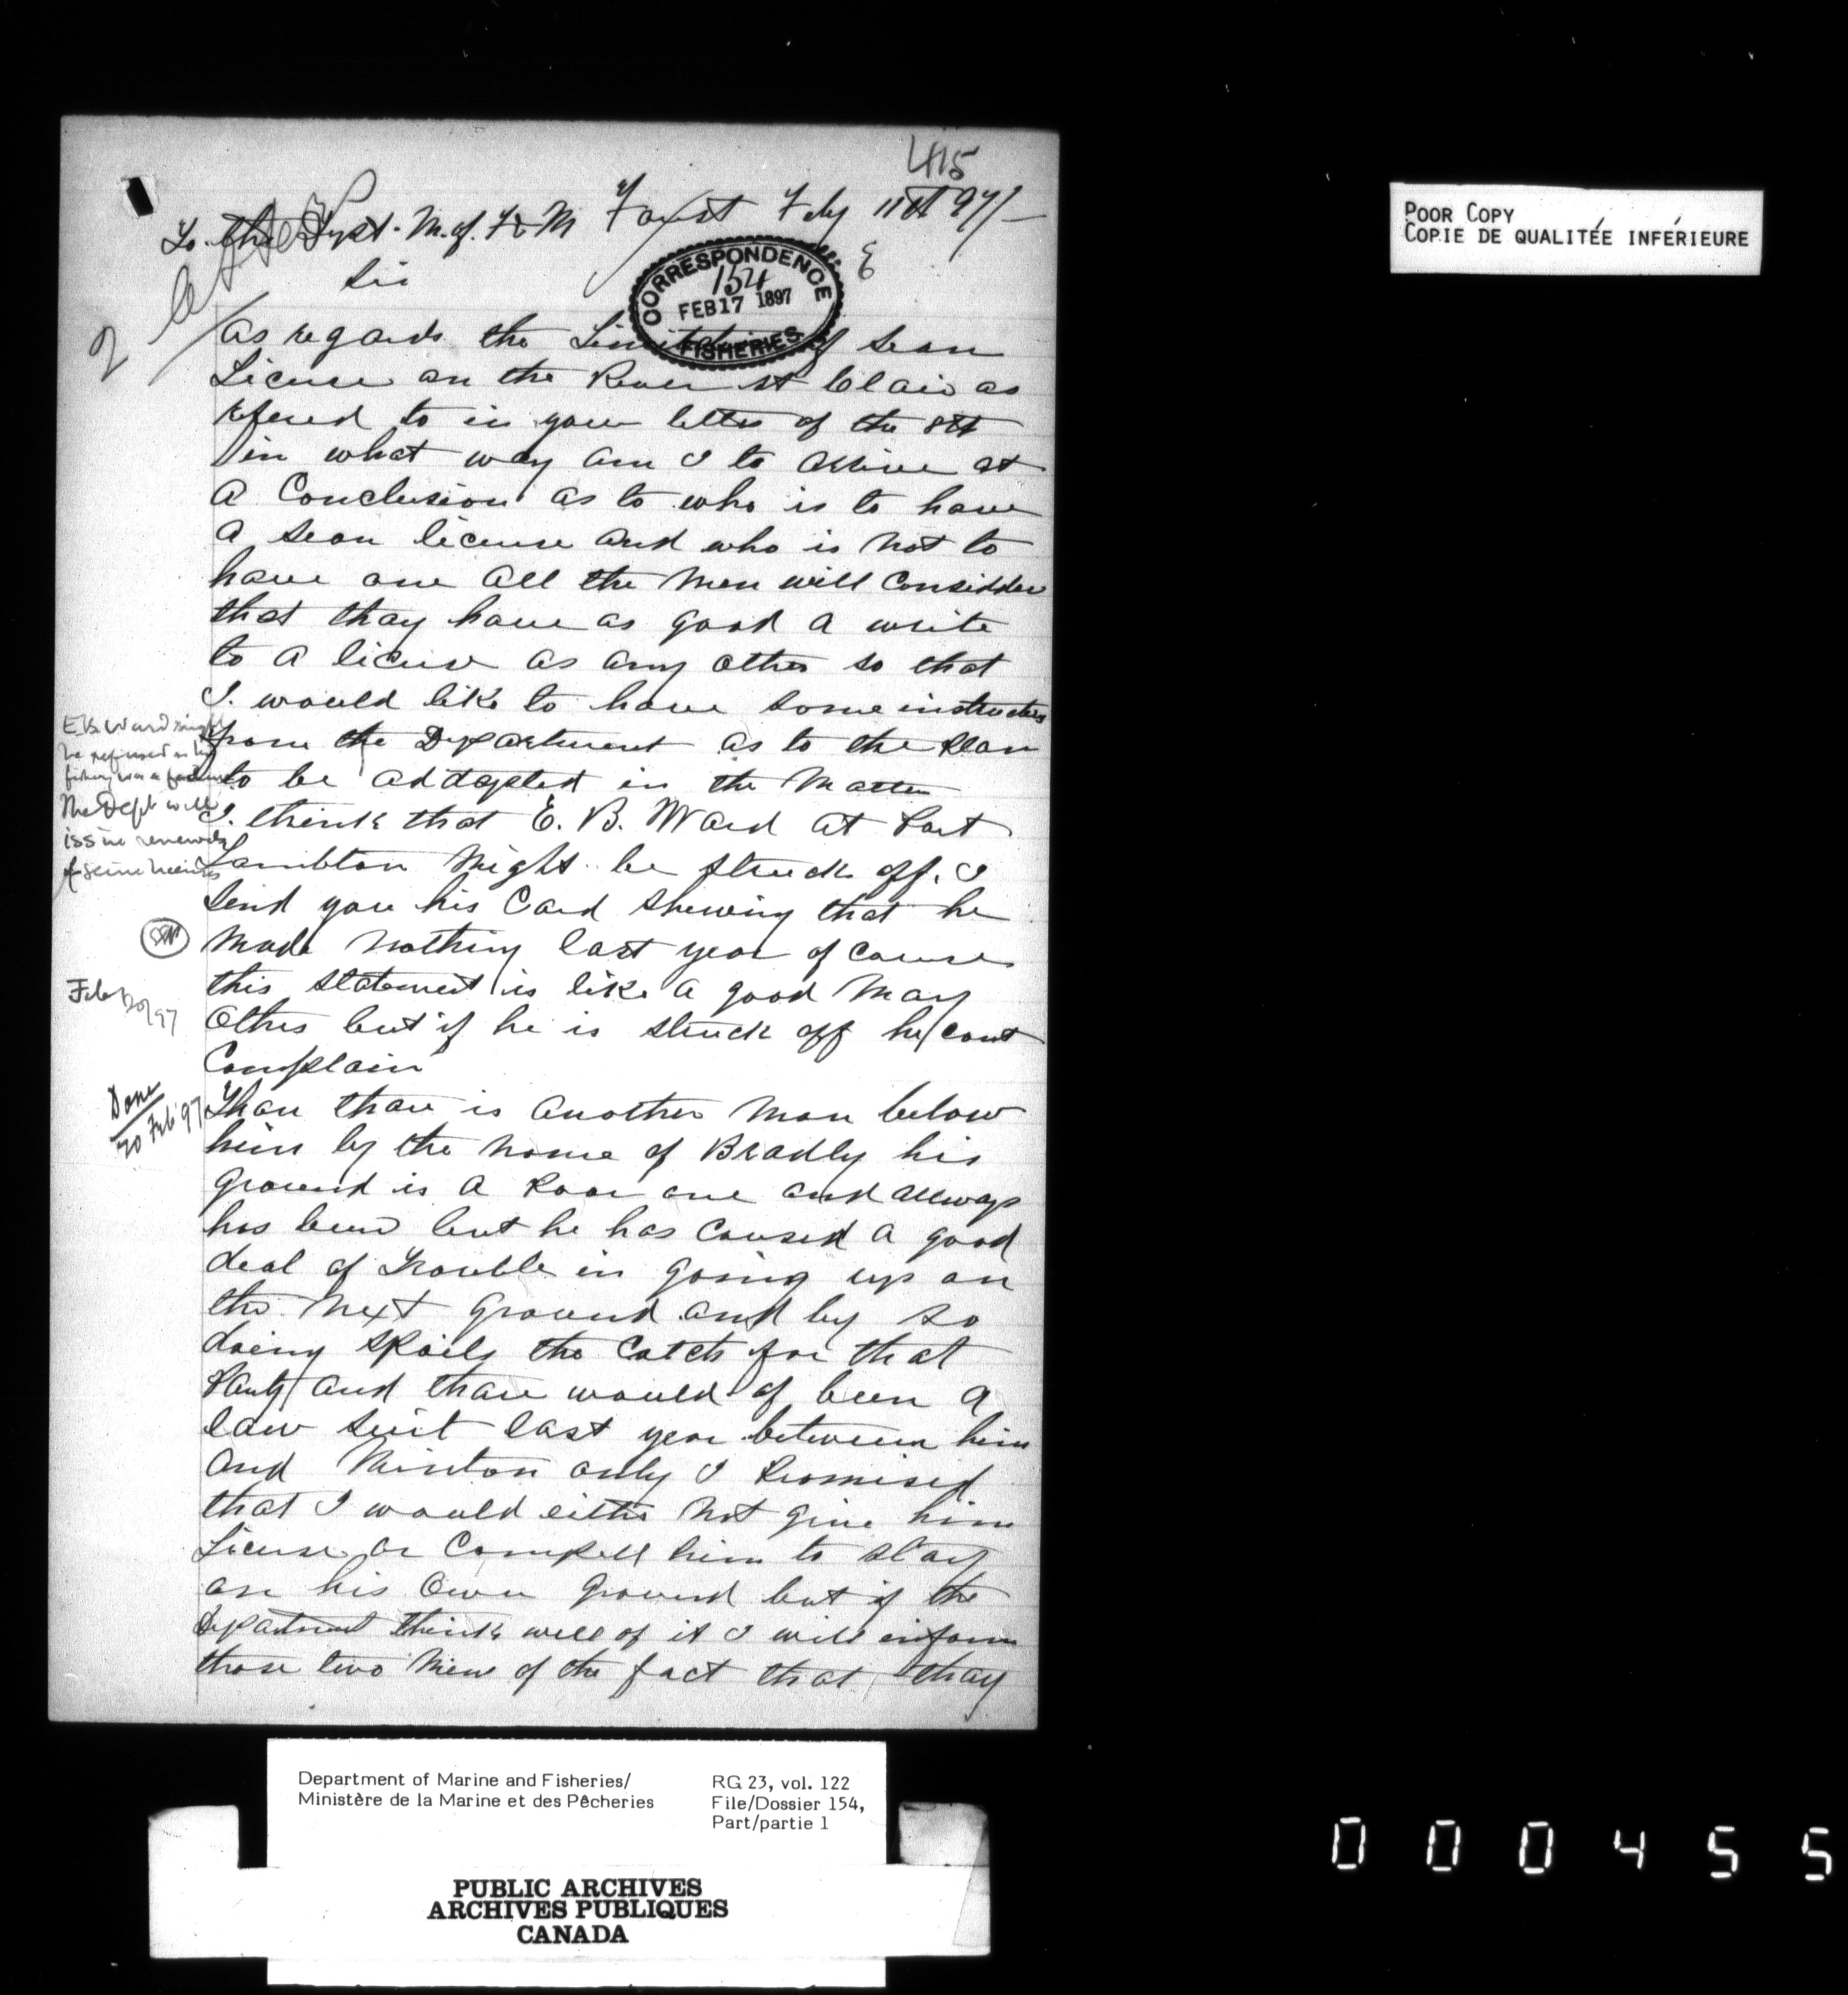 415
To the Dept. M. of F & M Forest Feby 11th 97/-
Sir
CORRESPONDENCE
154
FEB 17 1897
FISHERIES
As regards the Limitation of Sean
License on the River St Clair as
refered to in your letter of the 8th
in what way am I to arrive at
a Conclusion as to who is to have
a sean license and who is not to
have one All the Men will Considder
that thay have as good a write
to a license as any other so that
I. would like to have some instructions
from the Department as to the plan
to be addopted in the Matter
I. think that E. B. Ward at Port
Lambton Might be struck off. I
Send you his Card Shewing that he
Made Nothing last year of Course
this Statement is like a good Many
Others but if he is struck off he cant
Complain
Than thare is another Man below
him by the Name of Bradly his
Ground is a Poor one and allways
has been but he has Caused a good
deal of Trouble in going up on
the Next Ground and by so
doing spoils the Catch for that
Party and thare would of been a
law suit last year between him
and Minton only I Promised
that I would either Not give him
License or Compell him to stay
on his Own Ground but if the
Department think well of it I will inform
those two Men of the fact that thay
E B Ward might
be refused as his
fishery was a failure
The Dept will
issue renewals
of seine licenses
Feb 20/97
Done
20 Feb '97
POOR COPY
COPIE DE QUALITÉE INFÉRIEURE
Department of Marine and Fisheries/
Ministère de la Marine et des Pêcheries
RG 23, vol. 122
File/Dossier 154,
Part/partie 1
PUBLIC ARCHIVES
ARCHIVES PUBLIQUES
CANADA
000455